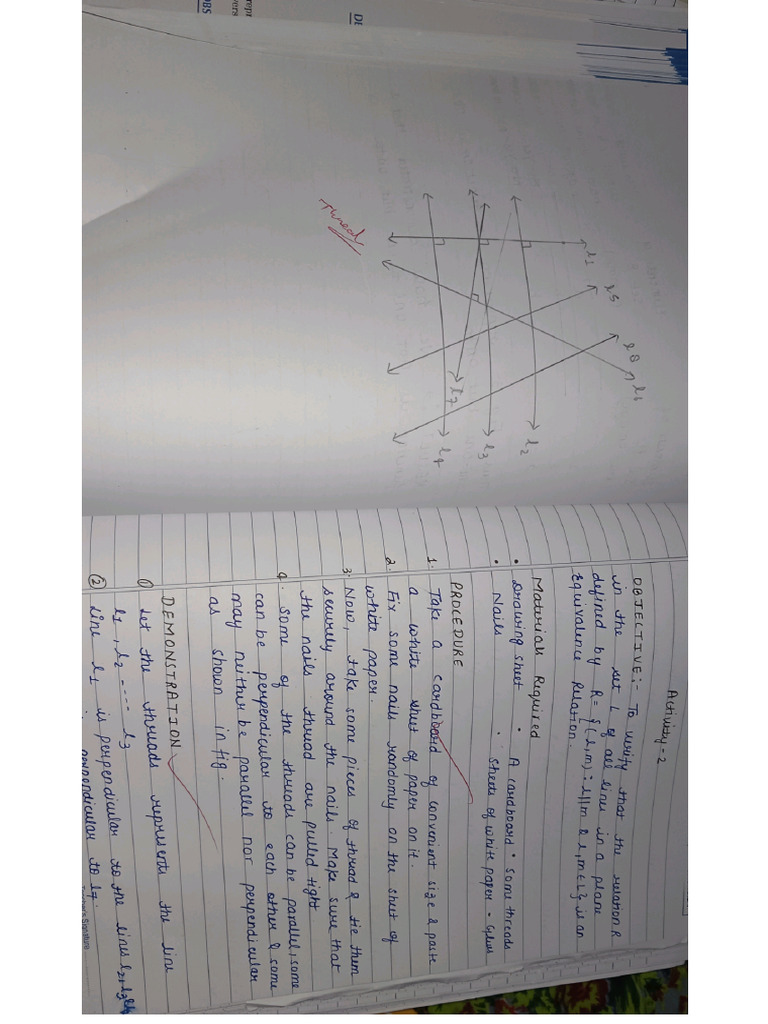 Activity - 2
OBJECTIVE:- To verify that the relation R
in the set L of all lines in a plane
defined by R = {(l,m): l||m & l,m∈L} is an
Equivalence Relation.
Materials Required
• Drawing sheet • A cardboard • Some threads
• Nails • Sheets of white paper • Glue
PROCEDURE
1. Take a cardboard of convenient size & paste
a white sheet of paper on it.
2. Fix some nails randomly on the sheet of
white paper.
3. Now, take some pieces of thread & tie them
securely around the nails. Make sure that
the nails thread are pulled tight
4. Some of the threads can be parallel, some
can be perpendicular to each other & some
may neither be parallel nor perpendicular
as shown in fig.
DEMONSTRATION
① Let the threads represents the line
l1, l2 ---- l3
② Line l1 is perpendicular to the lines l2, l3, l4
perpendicular to l7.
Teacher's Signature
l1
l5
l8
l6
l2
l3
l7
l4
Thread